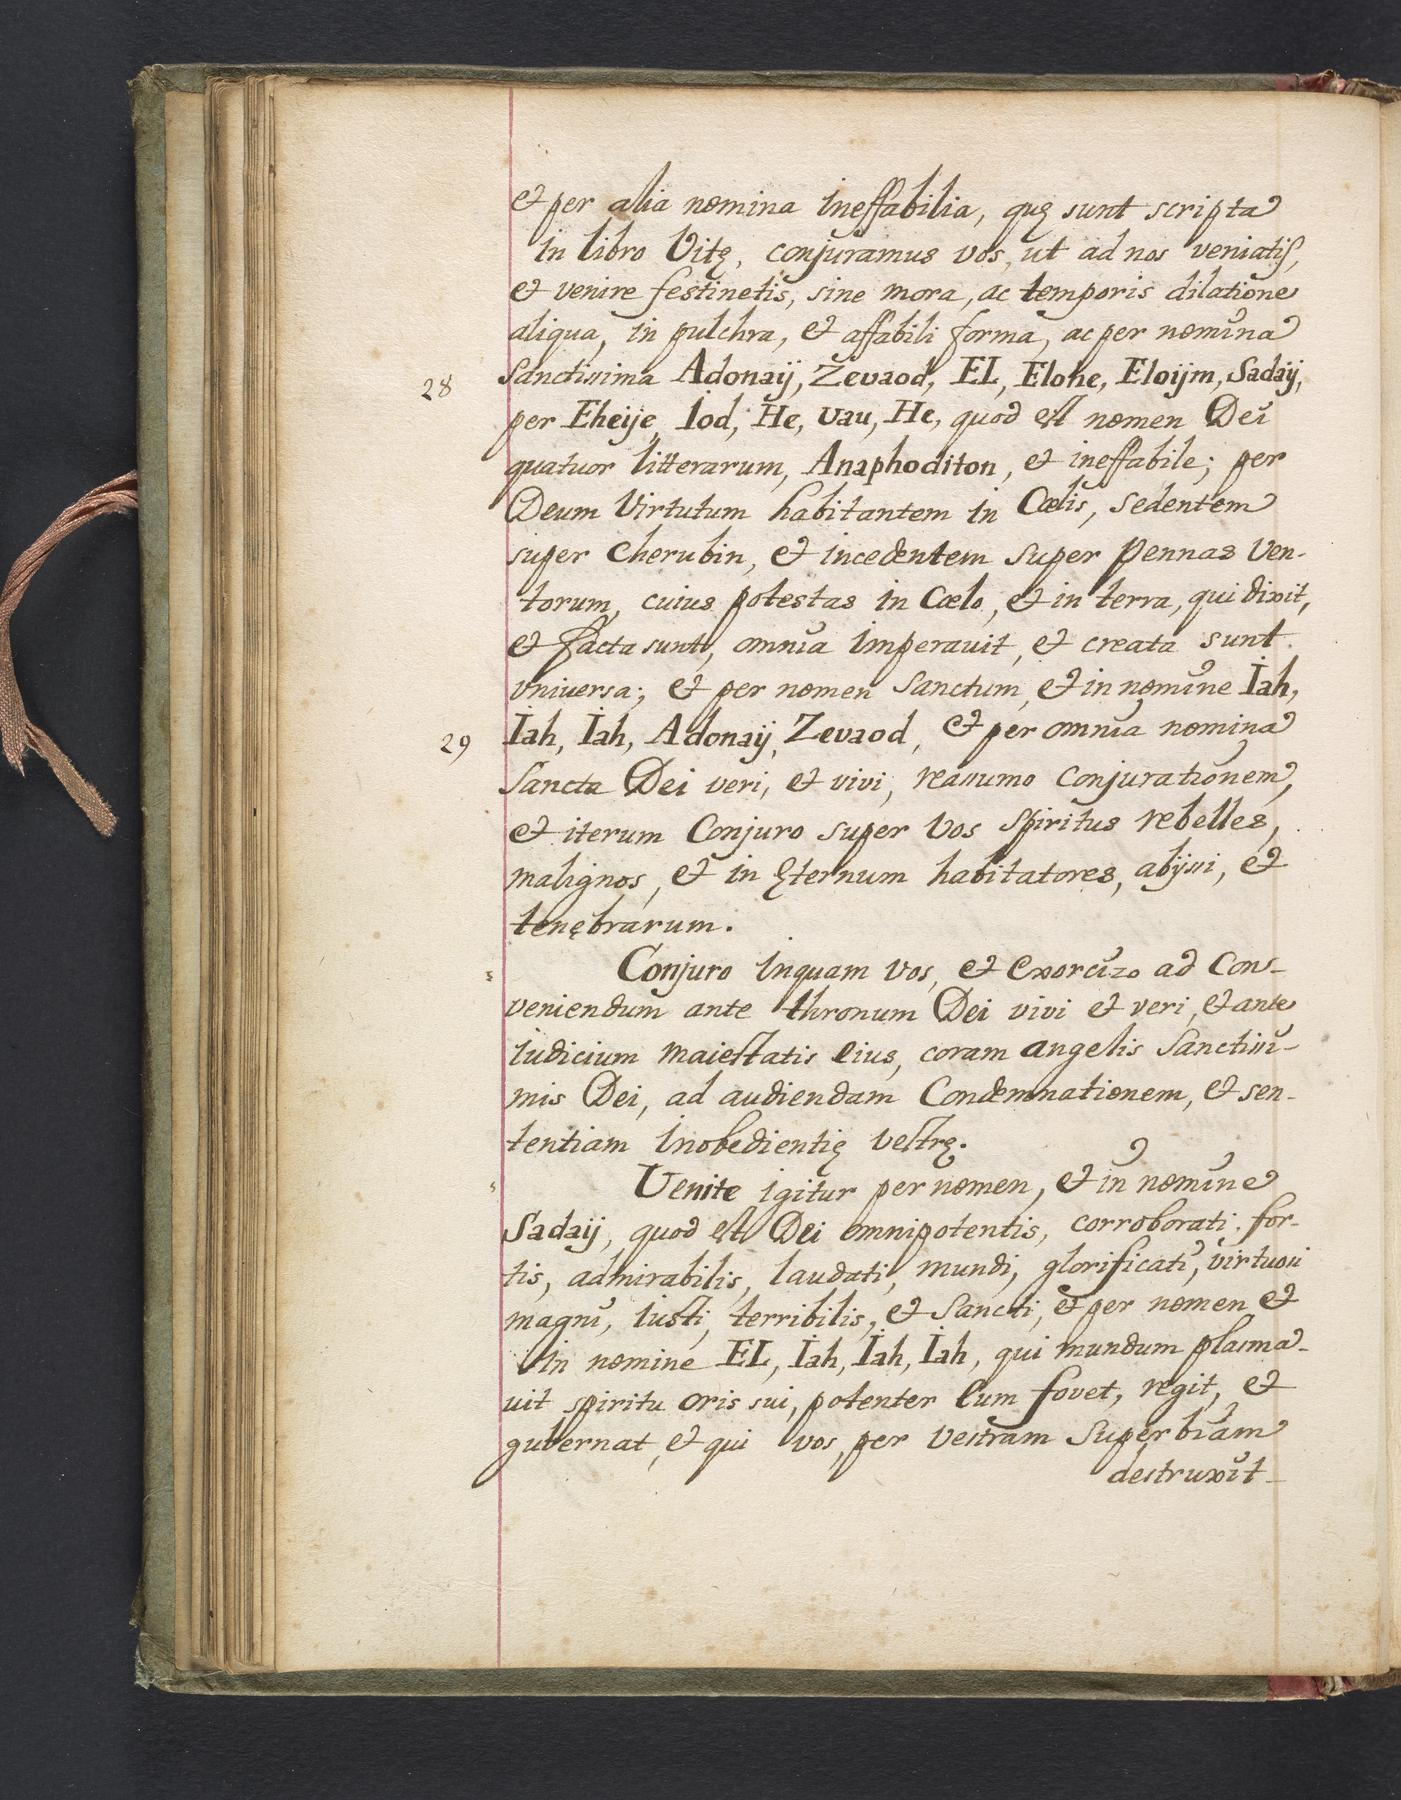 et per alia nomina ineffabilia, quę sunt scripta
in libro Vitę, conjuramus vos, ut ad nos veniatis,
et venire festinetis, sine mora, ac temporis dilatione
aliqua, in pulchra, et affabili forma, ac per nomina
28 Sanctissima Adonaij, Zevaod, EL, Elohe, Eloijm, Sadaij,
per Eheije, Iod, He, vau, He, quod est nomen Dei
quatuor litterarum, Anaphoditon, et ineffabile; per
Deum Virtutum habitantem in Cœlis, sedentem
super Cherubin, et incedentem super Pennas Ven-
torum, cuius potestas in Cœlo, et in terra, qui dixit,
et facta sunt, omnia imperauit, et creata sunt
vniuersa; et per nomen Sanctum, et in nomine Iah,
29 Iah, Iah, Adonaij, Zevaod, et per omnia nomina
Sancta Dei veri, et vivi, reassumo Conjurationem,
et iterum Conjuro super Vos Spiritus rebelles,
malignos, et in ęternum habitatores, abijssi, et
tenębrarum.
Conjuro inquam vos, et Exorcizo ad Con-
veniendum ante thronum Dei vivi et veri, et ante
iudicium maiestatis Eius, coram angelis Sanctissi-
mis Dei, ad audiendam Condemnationem, et sen-
tentiam inobedientię vestrę.
Venite igitur per nomen, et in nomine
Sadaij, quod est Dei omnipotentis, corroborati, for-
tis, admirabilis, laudati, mundi, glorificati, virtuosi
magni, iusti, terribilis, et Sancti, et per nomen et
in nomine EL, Iah, Iah, Iah, qui mundum plasma-
uit spiritu oris sui, potenter Eum fovet, regit, et
gubernat, et qui vos, per Vestram Superbiam
destruxit